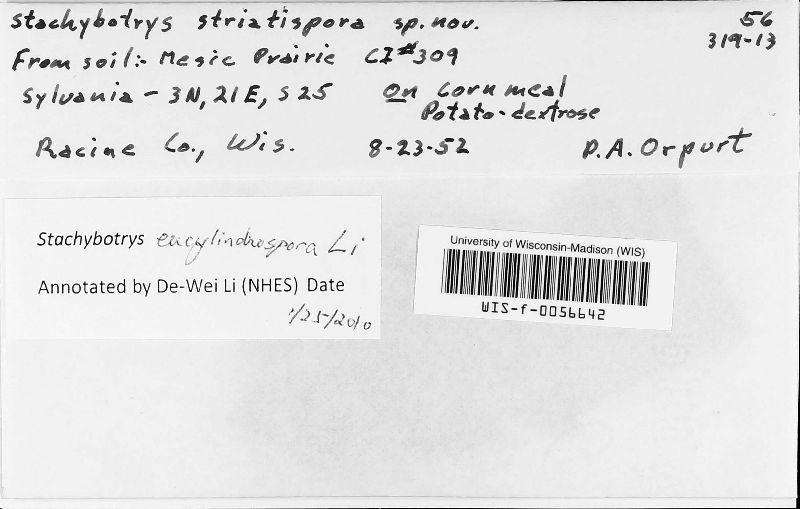 Stachybotrys striatispora sp. nov. 56
319-13
From soil:- Mesic Prairie CI#309
Sylvania - 3N, 21E, S25 On Corn meal
Potato-dextrose
Racine Co., Wis. 8-23-52 P.A. Orpurt
Stachybotrys eucylindrospora Li
Annotated by De-Wei Li (NHES) Date
1/25/2010
University of Wisconsin-Madison (WIS)
WIS-f-0056642